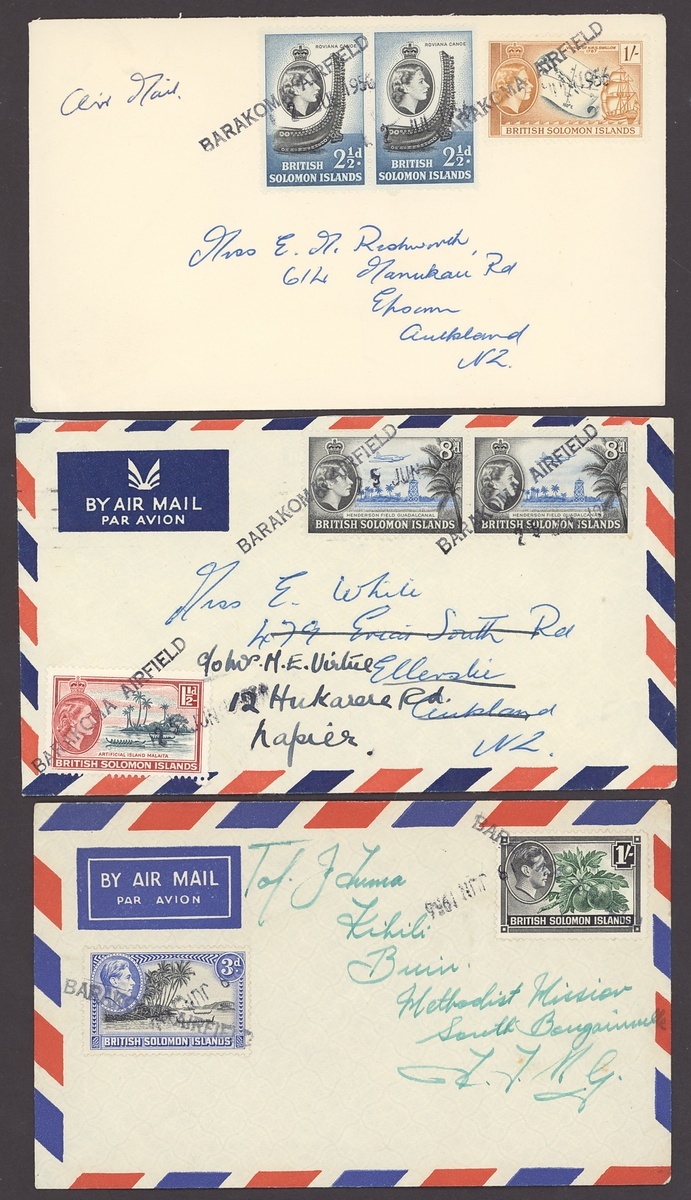 Air Mail.
ROVIANA CANOE
ROVIANA CANOE
1/-
BARAKOMA AIRFIELD
JUN 1956
BARAKOMA AIRFIELD
JUN 1956
2½d.
BRITISH SOLOMON ISLANDS
2½d.
BRITISH SOLOMON ISLANDS
BRITISH SOLOMON ISLANDS
Miss E. M. Rushworth,
614 Manukau Rd
Epsom
Auckland
N.Z.
BY AIR MAIL
PAR AVION
8d
8d
BARAKOMA AIRFIELD
JUN
BARAKOMA AIRFIELD
HENDERSON FIELD GUADALCANAL
BRITISH SOLOMON ISLANDS
HENDERSON FIELD GUADALCANAL
BRITISH SOLOMON ISLANDS
Miss E. White
479 South Rd
c/o Mrs. M.E. Virtue Ellerslie
12 Hukarere Rd. Auckland
Napier. N.Z.
BARAKOMA AIRFIELD
JUN
1½d
ARTIFICIAL ISLAND MALAITA
BRITISH SOLOMON ISLANDS
BY AIR MAIL
PAR AVION
BAR
JUN 1956
1/-
BRITISH SOLOMON ISLANDS
Kihili
Buin
Methodist Mission
South Bougainville
T. N. G.
3d
BARAKOMA AIRFIELD
JUN
BRITISH SOLOMON ISLANDS